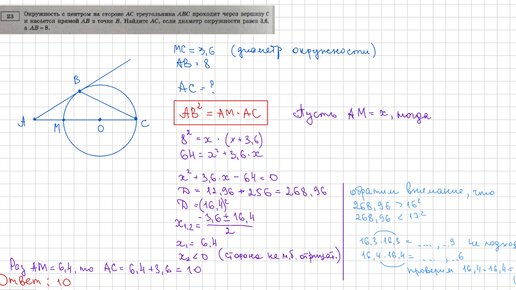 23
Окружность с центром на стороне AC треугольника ABC проходит через вершину C
и касается прямой AB в точке B. Найдите AC, если диаметр окружности равен 3,6,
а AB = 8.
MC = 3,6 (диаметр окружности)
AB = 8
AC = ?
AB² = AM · AC
Пусть AM = x, тогда
A
B
M
O
C
8² = x · (x + 3,6)
64 = x² + 3,6 · x
x² + 3,6 · x − 64 = 0
D = 12,96 + 256 = 268,96
D = (16,4)²
x₁,₂ = −3,6 ± 16,4 / 2
x₁ = 6,4
x₂ < 0 (сторона не м.б. отрицат.)
Раз AM = 6,4, то AC = 6,4 + 3,6 = 10
Ответ: 10
обратим внимание, что
268,96 > 16²
268,96 < 17²
16,3 · 16,3 = ... , ..9 не подход
16,4 · 16,4 = ... , ..6
проверим 16,4 · 16,4 =